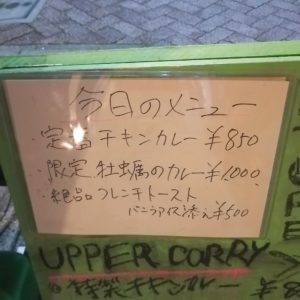 今日のメニュー
定番 チキンカレー ¥850
限定 牡蠣のカレー ¥1,000
絶品 フレンチトースト
バニラアイス添え ¥500
UPPER CURRY
特製チキンカレー